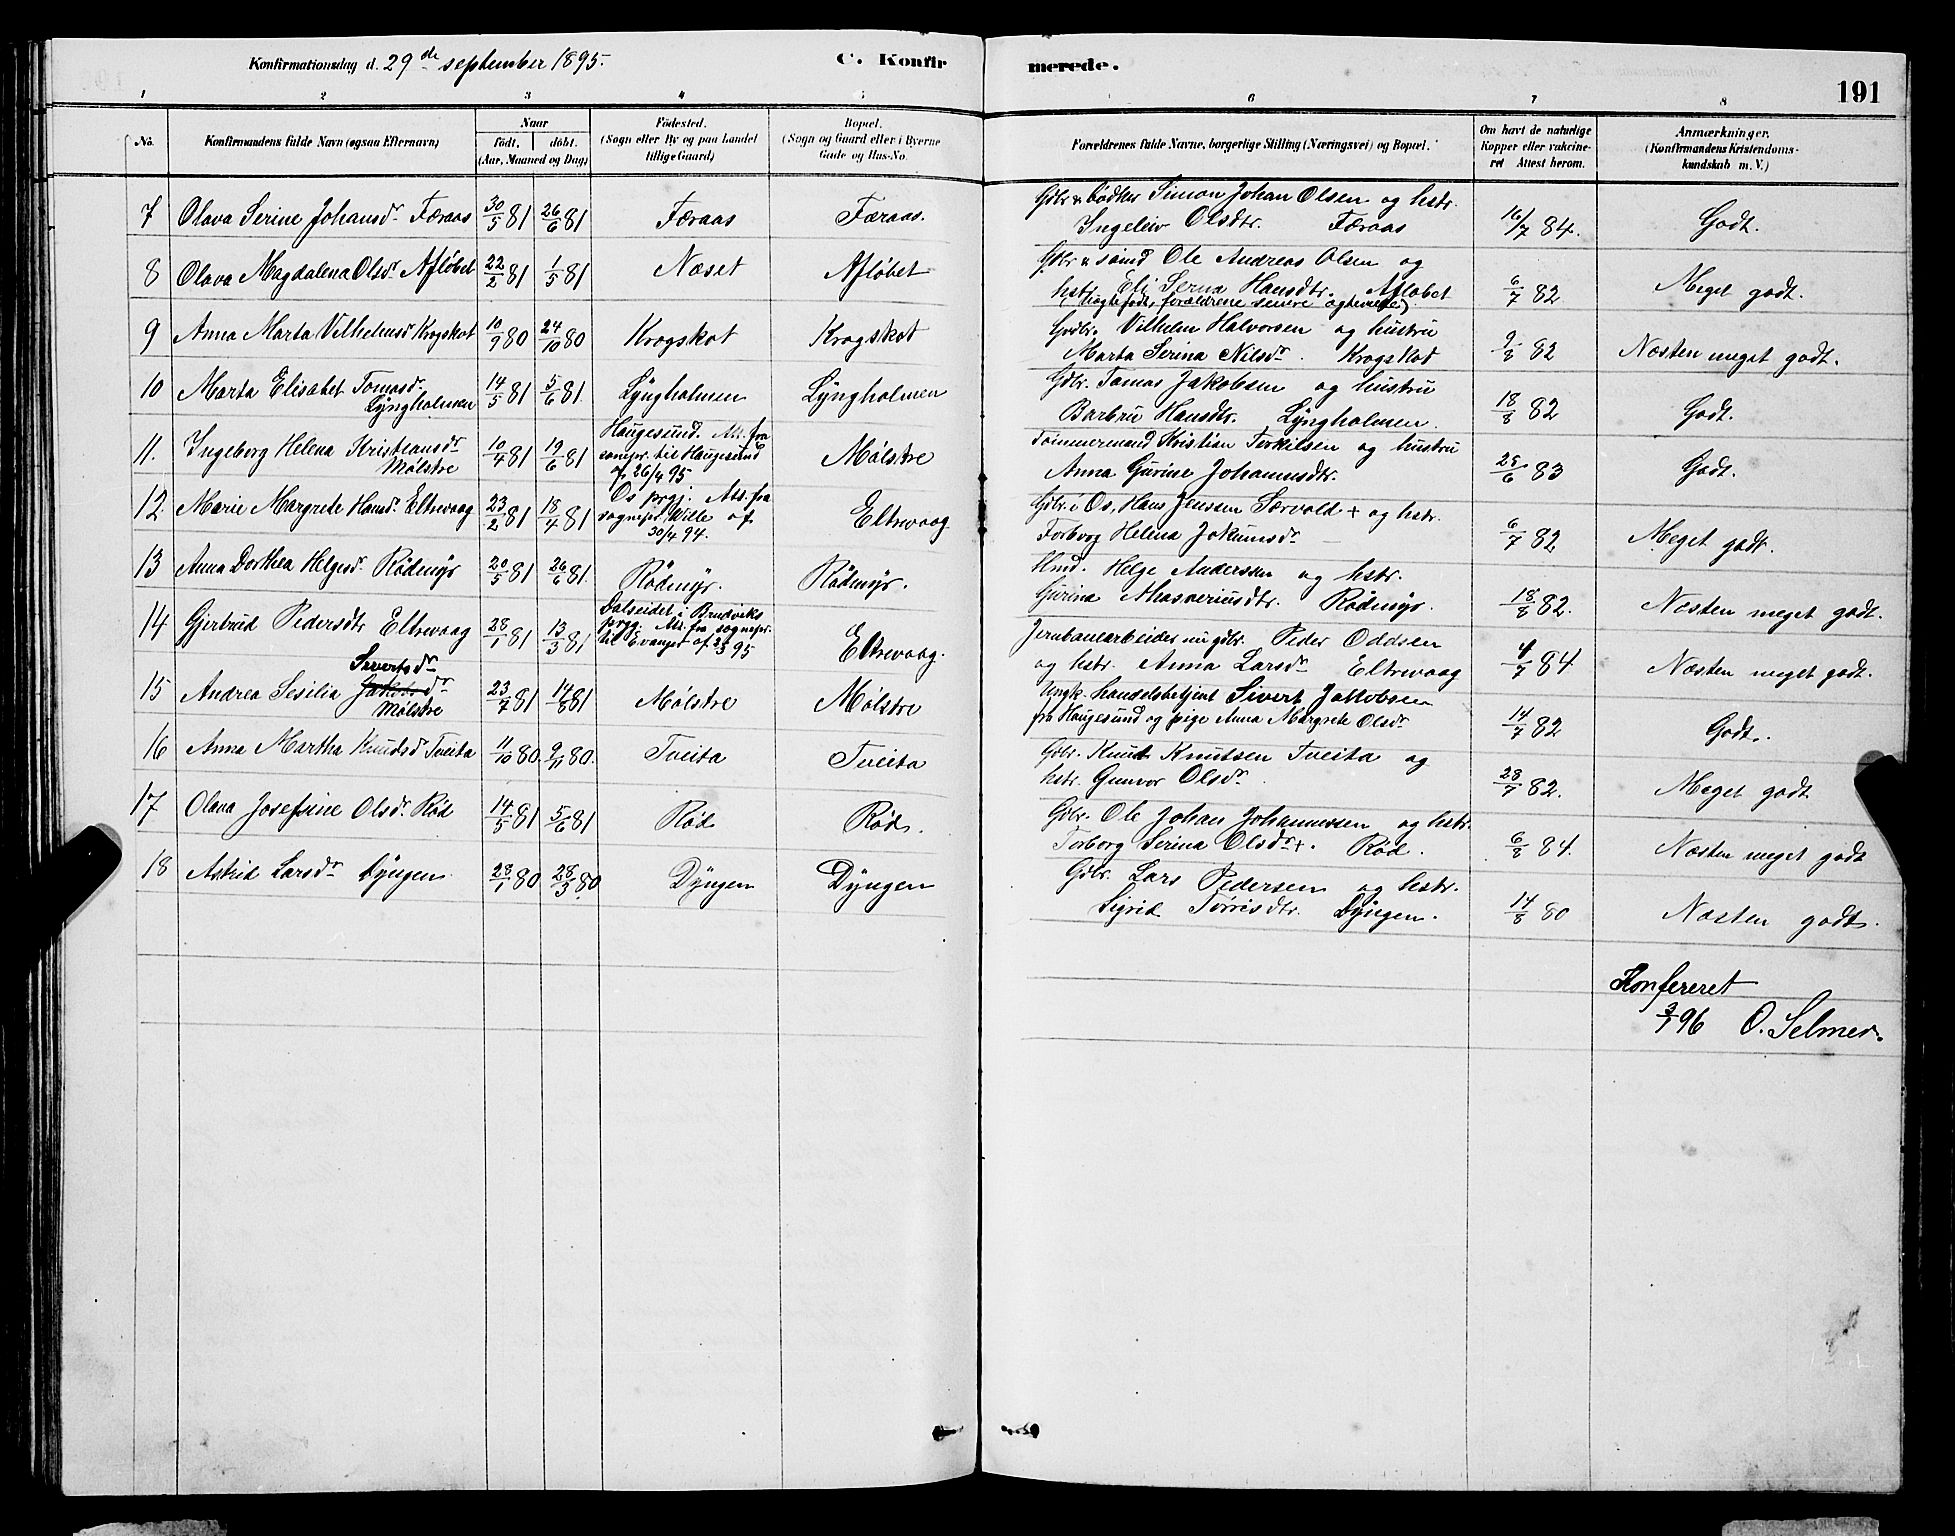 Konfirmationsdag d. 29de september 1895.
C. Konfir
merede.
191
1 2 3 4 5 6 7 8
No.
Konfirmandens fulde Navn (ogsaa Efternavn)
Naar
født, døbt.
(Aar, Maaned og Dag)
Fødested.
(Sogn eller By og paa Landet
tillige Gaard)
Bopæl.
(Sogn og Gaard eller i Byerne
Gade og Hus-No.
Forældrenes fulde Navne, borgerlige Stilling (Næringsvei) og Bopæl.
Om havt de naturlige
Kopper eller vakcine-
ret Attest herom.
Anmærkninger.
(Konfirmandens Kristendoms-
kundskab m. V.)
7 Olava Serine Johansdr. Færaas 30/5 81 26/6 81 Færaas Færaas.
Gdbr & bødker Simon Johan Olsen og hstr.
Ingeleiv Olsdtr. Færaas 16/7 84. Godt.
8 Olava Magdalena Olsdr. Afløbet 22/2 81 1/5 81 Næset Afløbet
Gdbr & smed Ole Andreas Olsen og
hstr. Eli Serna Hansdtr. Afløbet 6/7 82 Meget godt.
(uægtefødt, forældrene senere ægteviede)
9 Anna Marta Vilhelmsdr Krogskot 10/9 80 24/10 80 Krogskot Krogskot
Gdbr. Vilhelm Halvorsen og hustru
Marta Serina Nilsdr. Krogskot 9/8 82 Næsten meget godt.
10 Marta Elisabet Tomasdr.
Lyngholmen 14/5 81 5/6 81 Lyngholmen Lyngholmen
Gdbr. Tomas Jakobsen og hustru
Barbru Hansdtr. Lyngholmen. 18/8 82 Godt.
11. Ingeborg Helena Kristiansdr
Mølstre 10/4 81 19/6 81
Haugesund. Att. fra
sognepr. til Haugesund
af 26/4 95
Mølstre
Tømmermand Kristian Terkilsen og hustru
Anna Gurine Johannesdtr. 25/6 83 Godt.
12. Marie Margrete Hansdr. Eltrevaag 23/2 81 18/4 81
Os prgj. Att. fra
sognepr. Wille af
30/4 94.
Eltrevaag
Gdbr. i Os, Hans Jenssen Særvold + og hstr.
Torborg Helena Jokumsdr 6/7 82 Meget godt.
13 Anna Dorthea Helgesdr. Rødmyr 20/5 81 26/6 81. Rødmyr. Rødmyr.
Hmd. Helge Anderssen og hstr.
Gurina Aasveriusdtr. Rødmyr. 18/8 82. Næsten meget godt.
14 Gjertrud Pedersdtr Eltrevaag 28/1 81 13/3 81
Dalseidet i Bruvik
prgj. Att. fra sognepr.
til Evanger af 2/3 95
Eltrevaag.
Jernbanearbeider nu gdbr. Peder Oddsen
og hstr. Anna Larsdr Eltrevaag 4/7 84 Næsten meget godt.
15 Andrea Sesilia Jakobsdr
Sivertsdr
Mølstre 23/7 81 14/8 81 Mølstre Mølstre
Ungk. handelsbetjent Sivert Jakobsen
fra Haugesund og pige Anna Margrete Olsdr 14/7 82 Godt.
16 Anna Martha Knudsd Tveita 11/10 80. 9/11 80. Tveita Tveita
Gdbr. Knut Knutsen Tveita og
hstr. Gunvor Olsdr. 28/7 82. Meget godt.
17 Olava Josefine Olsdr. Rød 14/5 81 5/6 81 Rød Rød.
Gdbr. Ole Johan Johannessen og hstr.
Torborg Serina Olsdr +. Rød. 6/8 84. Næsten meget godt
18 Astrid Larsdr Dyngen 28/1 80 28/3 80. Dyngen Dyngen
Gdbr. Lars Pedersen og hstr.
Sigrid Torresdtr. Dyngen. 14/8 80 Næsten godt.
Konfereret
3/1 96 O. Selmer.